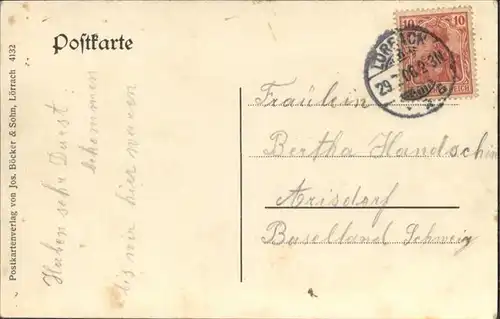 Postkarte
10
LÖRRACH
29
06.2-3N
REICH
Fräulein
Bertha Handschin
Arisdorf
Baselland Schweiz
Haben sehr Durst
bekommen
bis wir hier waren
Postkartenverlag von Jos. Böcker & Sohn, Lörrach 4132